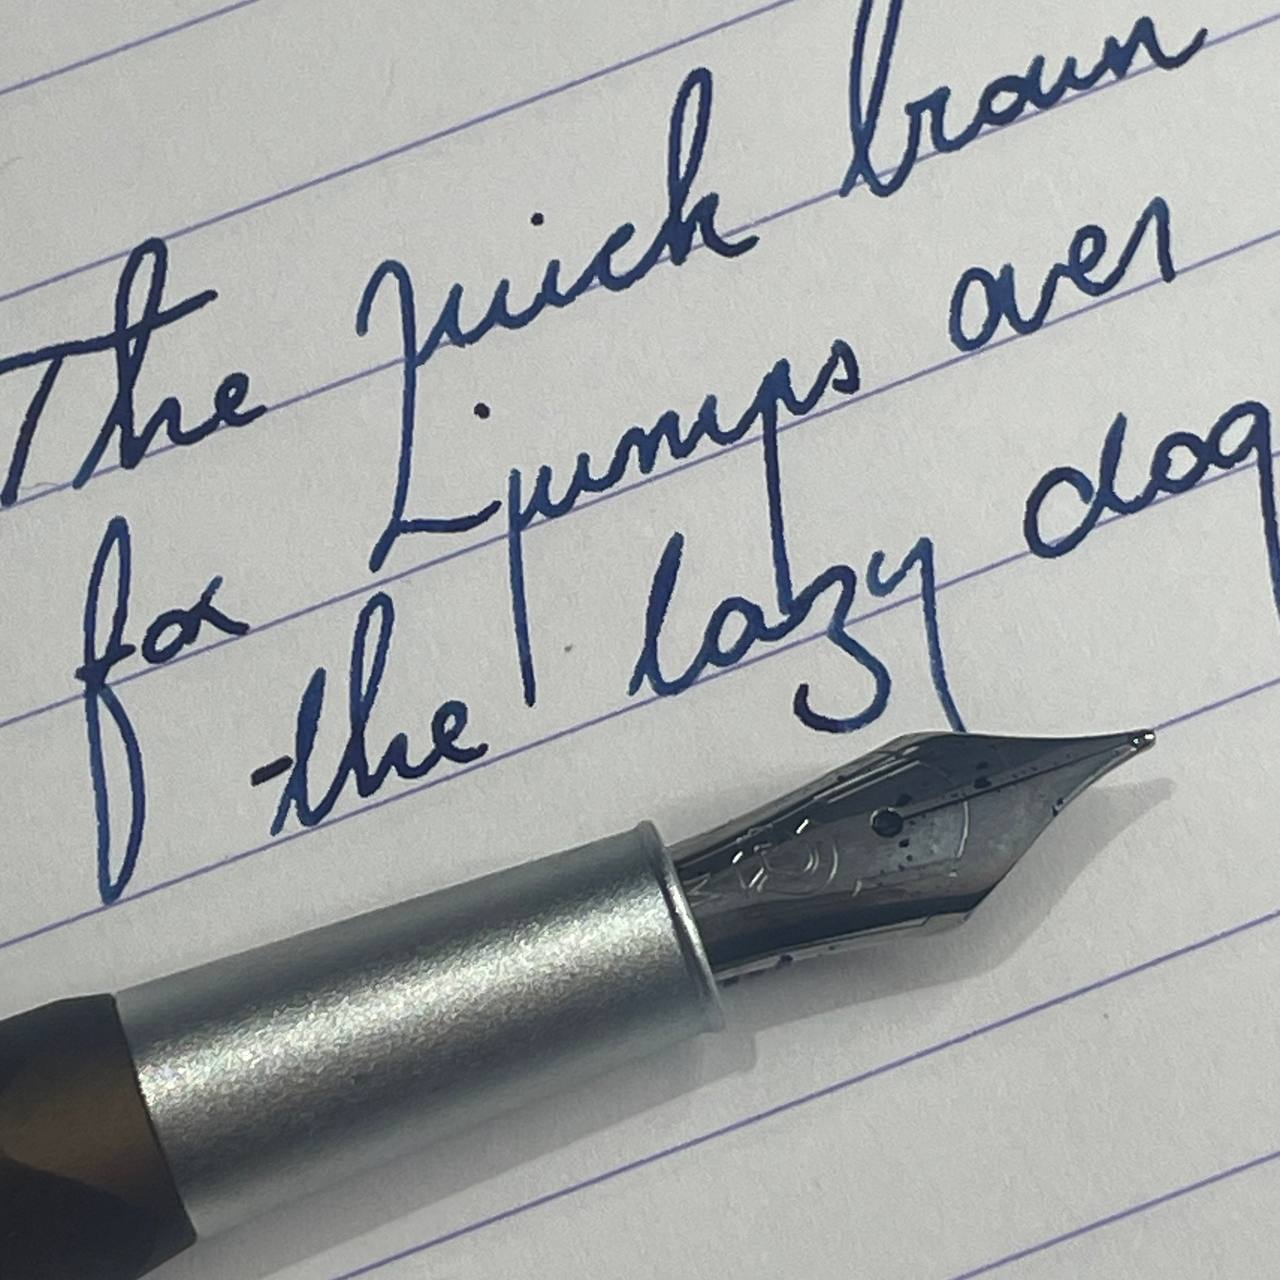 The quick brown
fox jumps over
the lazy dog